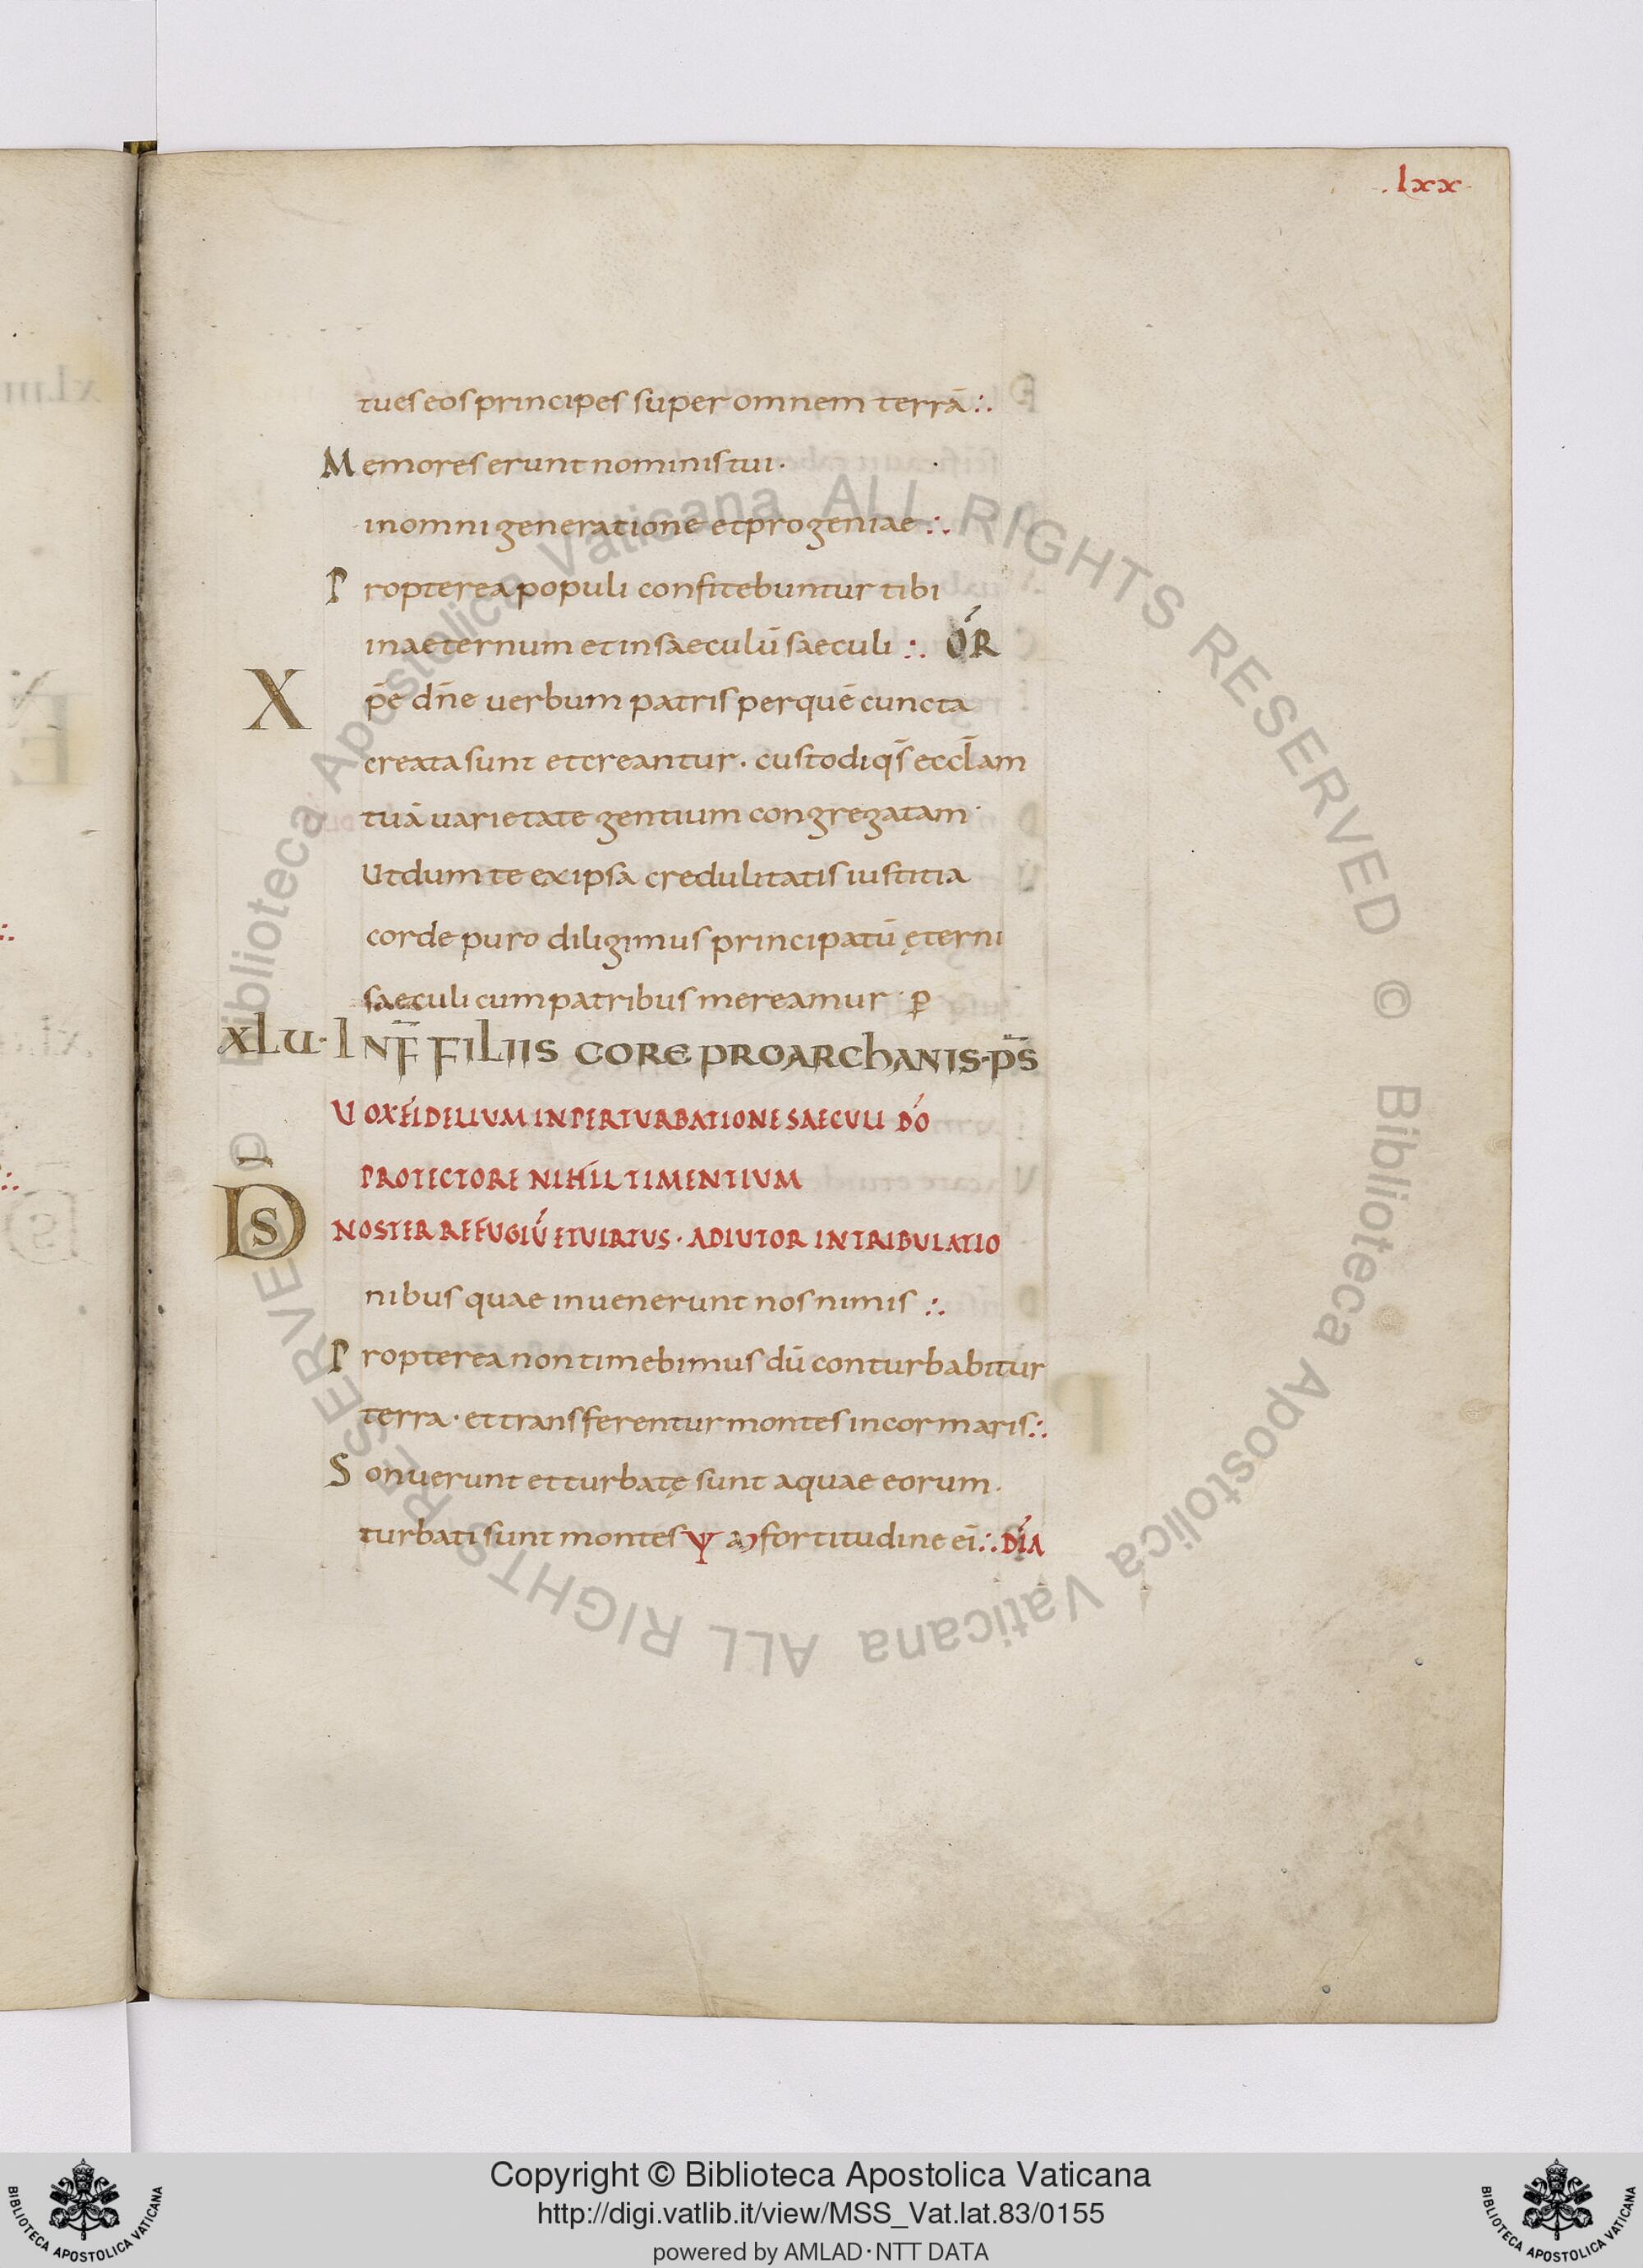 .lxx.
tues eos principes super omnem terrā :.
Memores erunt nominis tui ·
in omni generatione et progeniae :.
Propterea populi confitebuntur tibi
in aeternum et in saeculū saeculi :. ÓR
Xp̄e dn̄e uerbum patris per quē cuncta
creata sunt et creantur · custodi qs̄ eccl̄am
tuā uarietate gentium congregatam ·
Ut dum te ex ipsa credulitatis iustitia
corde puro diligimus principatū ęterni
saeculi cum patribus mereamur · p̲
xlu · IN F̄ FILIIS CORE PRO ARCHANIS · P̄S
UOX FIDELIUM IN PERTURBATIONE SAECULI DÓ
PROTECTORE NIHIL TIMENTIUM
D̄S NOSTER REFUGIŪ ET UIRTUS · ADIUTOR IN TRIBULATIO
nibus quae inuenerunt nos nimis :.
Propterea non timebimus dū conturbabitur
terra · et transferentur montes in cor maris :.
Sonuerunt et turbatę sunt aquae eorum ·
turbati sunt montes Ψ a fortitudine ei :. DÍA
© Biblioteca Apostolica Vaticana ALL RIGHTS RESERVED © Biblioteca Apostolica Vaticana ALL RIGHTS RESERVED
Copyright © Biblioteca Apostolica Vaticana
http://digi.vatlib.it/view/MSS_Vat.lat.83/0155
powered by AMLAD·NTT DATA
BIBLIOTECA APOSTOLICA VATICANA
BIBLIOTECA APOSTOLICA VATICANA